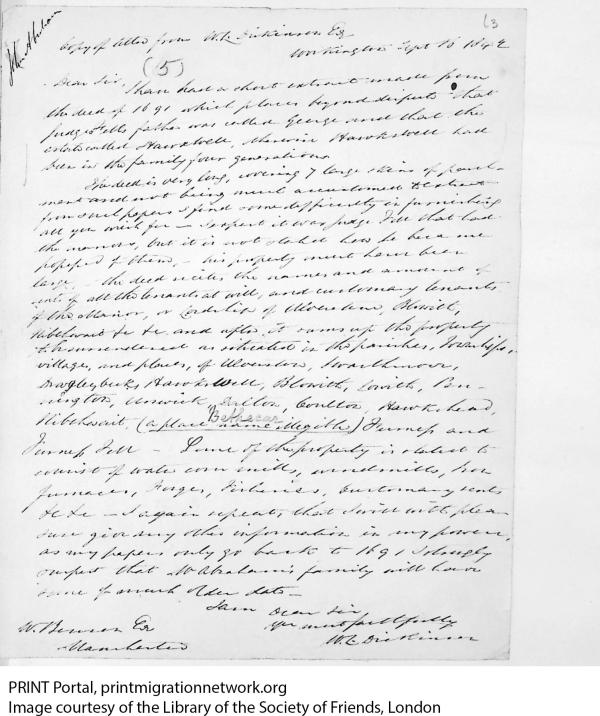 63
John Abraham
Copy of letter from W. L. Dickinson Esq
Workington Sept 16 1842
(5)
Dear Sir, I have had a short extract made from
the deed of 1691 which places beyond dispute that
Judge Fells father was called George and that the
estate called Hawkswell, otherwise Hawkswell had
been in the family four generations
The deed is very long, covering 7 large skins of parch-
ment and not being much accustomed to extract
from such papers I find some difficulty in furnishing
all you wish for — I suspect it was Judge Fell that had
the manors, but it is not stated how he became
possessed of them, — his property must have been
large, — the deed recites the names and amount of
rents of all the tenants at will, and customary tenants
of the Manor, or Lordship of Ulverstone, Blowith,
Nibthwaite &c &c and after it sums up the property
to be surrendered as situated in the parishes, Townships,
villages, and places, of Ulverston, Swarthmoor,
Dragleybeck, Hawkswell, Blowith, Lowith, Pen-
nington, Urswick, Carlton, Coulton, Hawkshead,
Bethecar
Nibthwait, (a place name illegible) Furness and
Furness Fell — Some of the property is stated to
consist of water corn mills, windmills, Iron
furnaces, Forges, Fisheries, Customary rents
&c &c — I again repeat, that I will with plea-
sure give any other information in my power,
as my papers only go back to 1691 I strongly
suspect that Mr Abrahams family will have
some of much older date —
I am Dear Sir
Yrs most faithfully
W. L. Dickinson
W. Benson Esq
Manchester
PRINT Portal, printmigrationnetwork.org
Image courtesy of the Library of the Society of Friends, London